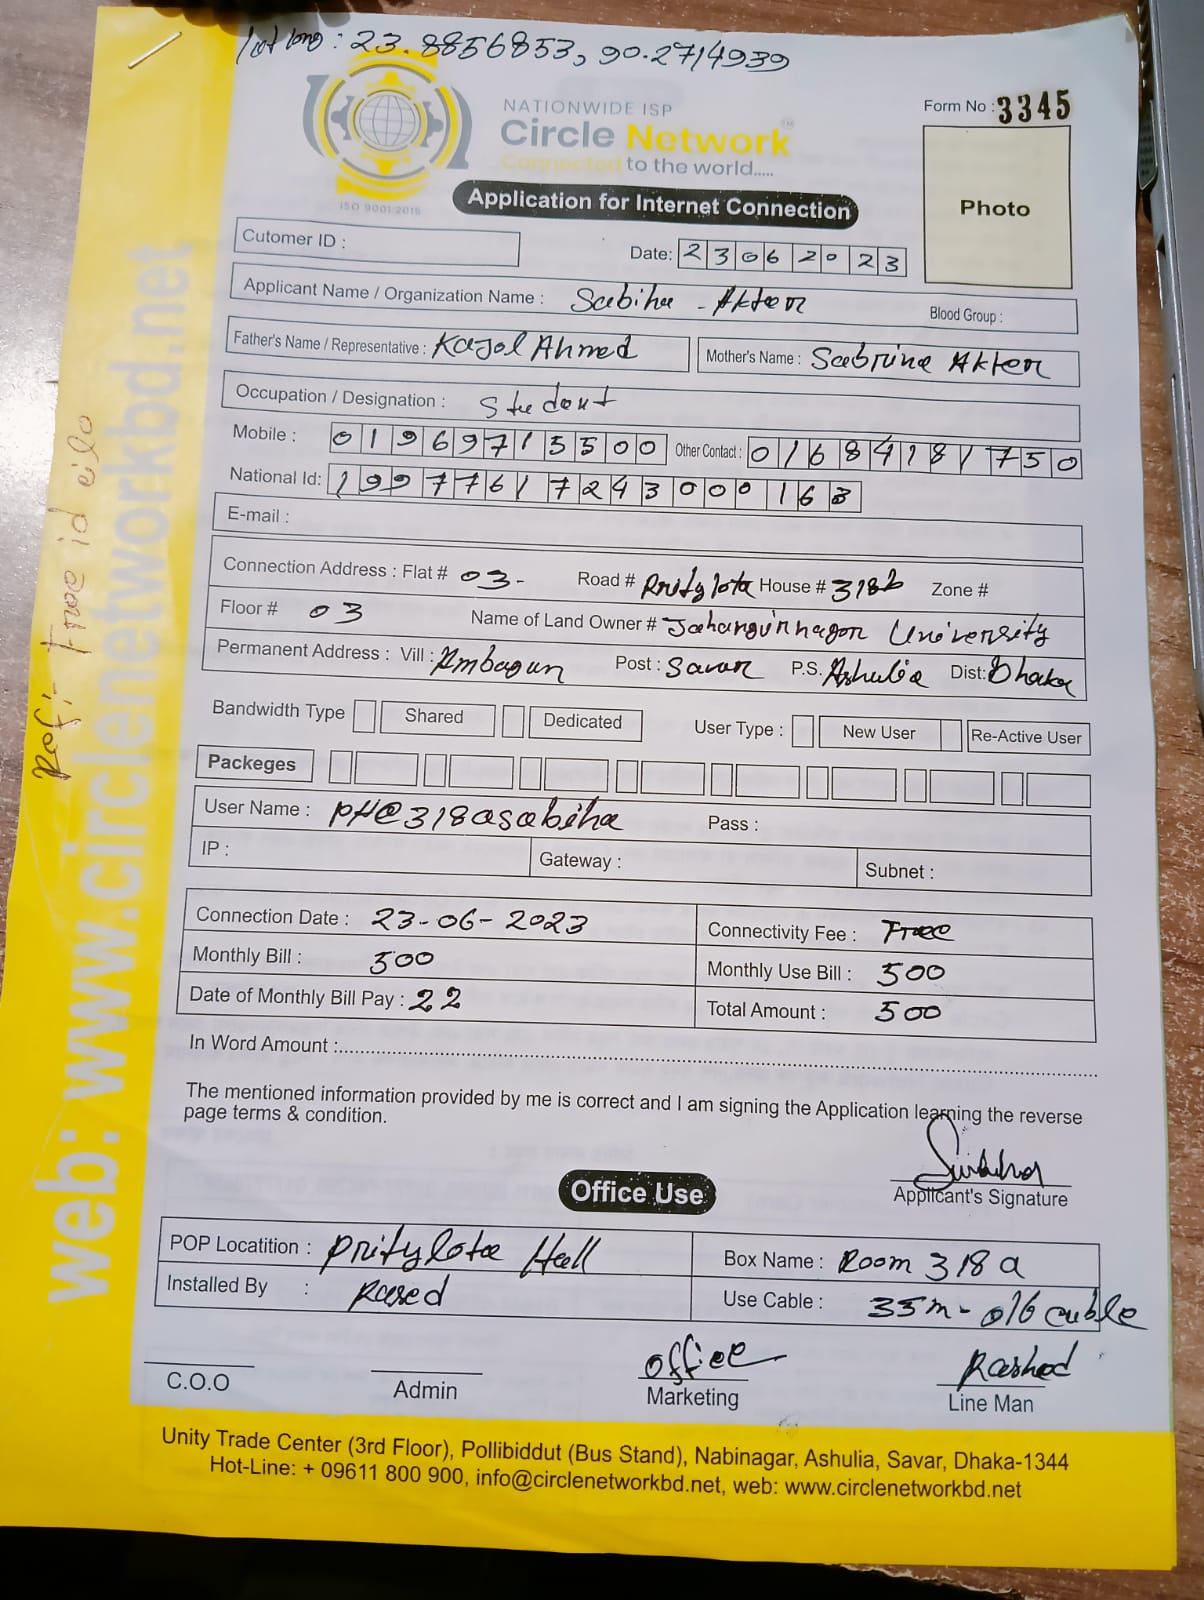 Lat long : 23.8856853, 90.2714939
NATIONWIDE ISP
Circle Network
Connected to the world.....
ISO 9001:2015
Form No : 3345
Photo
Application for Internet Connection
Cutomer ID :
Date: 23062023
Applicant Name / Organization Name : Sabiha - Akter
Blood Group :
Father's Name / Representative : Kajol Ahmed
Mother's Name : Sabrina Akter
Occupation / Designation : Student
Mobile : 01969715500 Other Contact : 01684181750
National Id: 19977617243000163
E-mail :
Connection Address : Flat # 03- Road # Pritylota House # 318b Zone #
Floor # 03 Name of Land Owner # Jahangirnagor University
Permanent Address : Vill : Ambagan Post : Savar P.S. Ashulia Dist: Dhaka
Bandwidth Type Shared Dedicated User Type : New User Re-Active User
Packeges
User Name : PH@318asabiha Pass :
IP : Gateway : Subnet :
Connection Date : 23-06-2023 Connectivity Fee : Free
Monthly Bill : 500 Monthly Use Bill : 500
Date of Monthly Bill Pay : 22 Total Amount : 500
In Word Amount :
The mentioned information provided by me is correct and I am signing the Application learning the reverse
page terms & condition.
Applicant's Signature
Office Use
POP Locatition : Pritylota Hall Box Name : Room 318 a
Installed By : Rased Use Cable : 35m-
C.O.O Admin office Marketing Rashed Line Man
Unity Trade Center (3rd Floor), Pollibiddut (Bus Stand), Nabinagar, Ashulia, Savar, Dhaka-1344
Hot-Line: + 09611 800 900, info@circlenetworkbd.net, web: www.circlenetworkbd.net
web: www.circlenetworkbd.net
Ref:- Free id